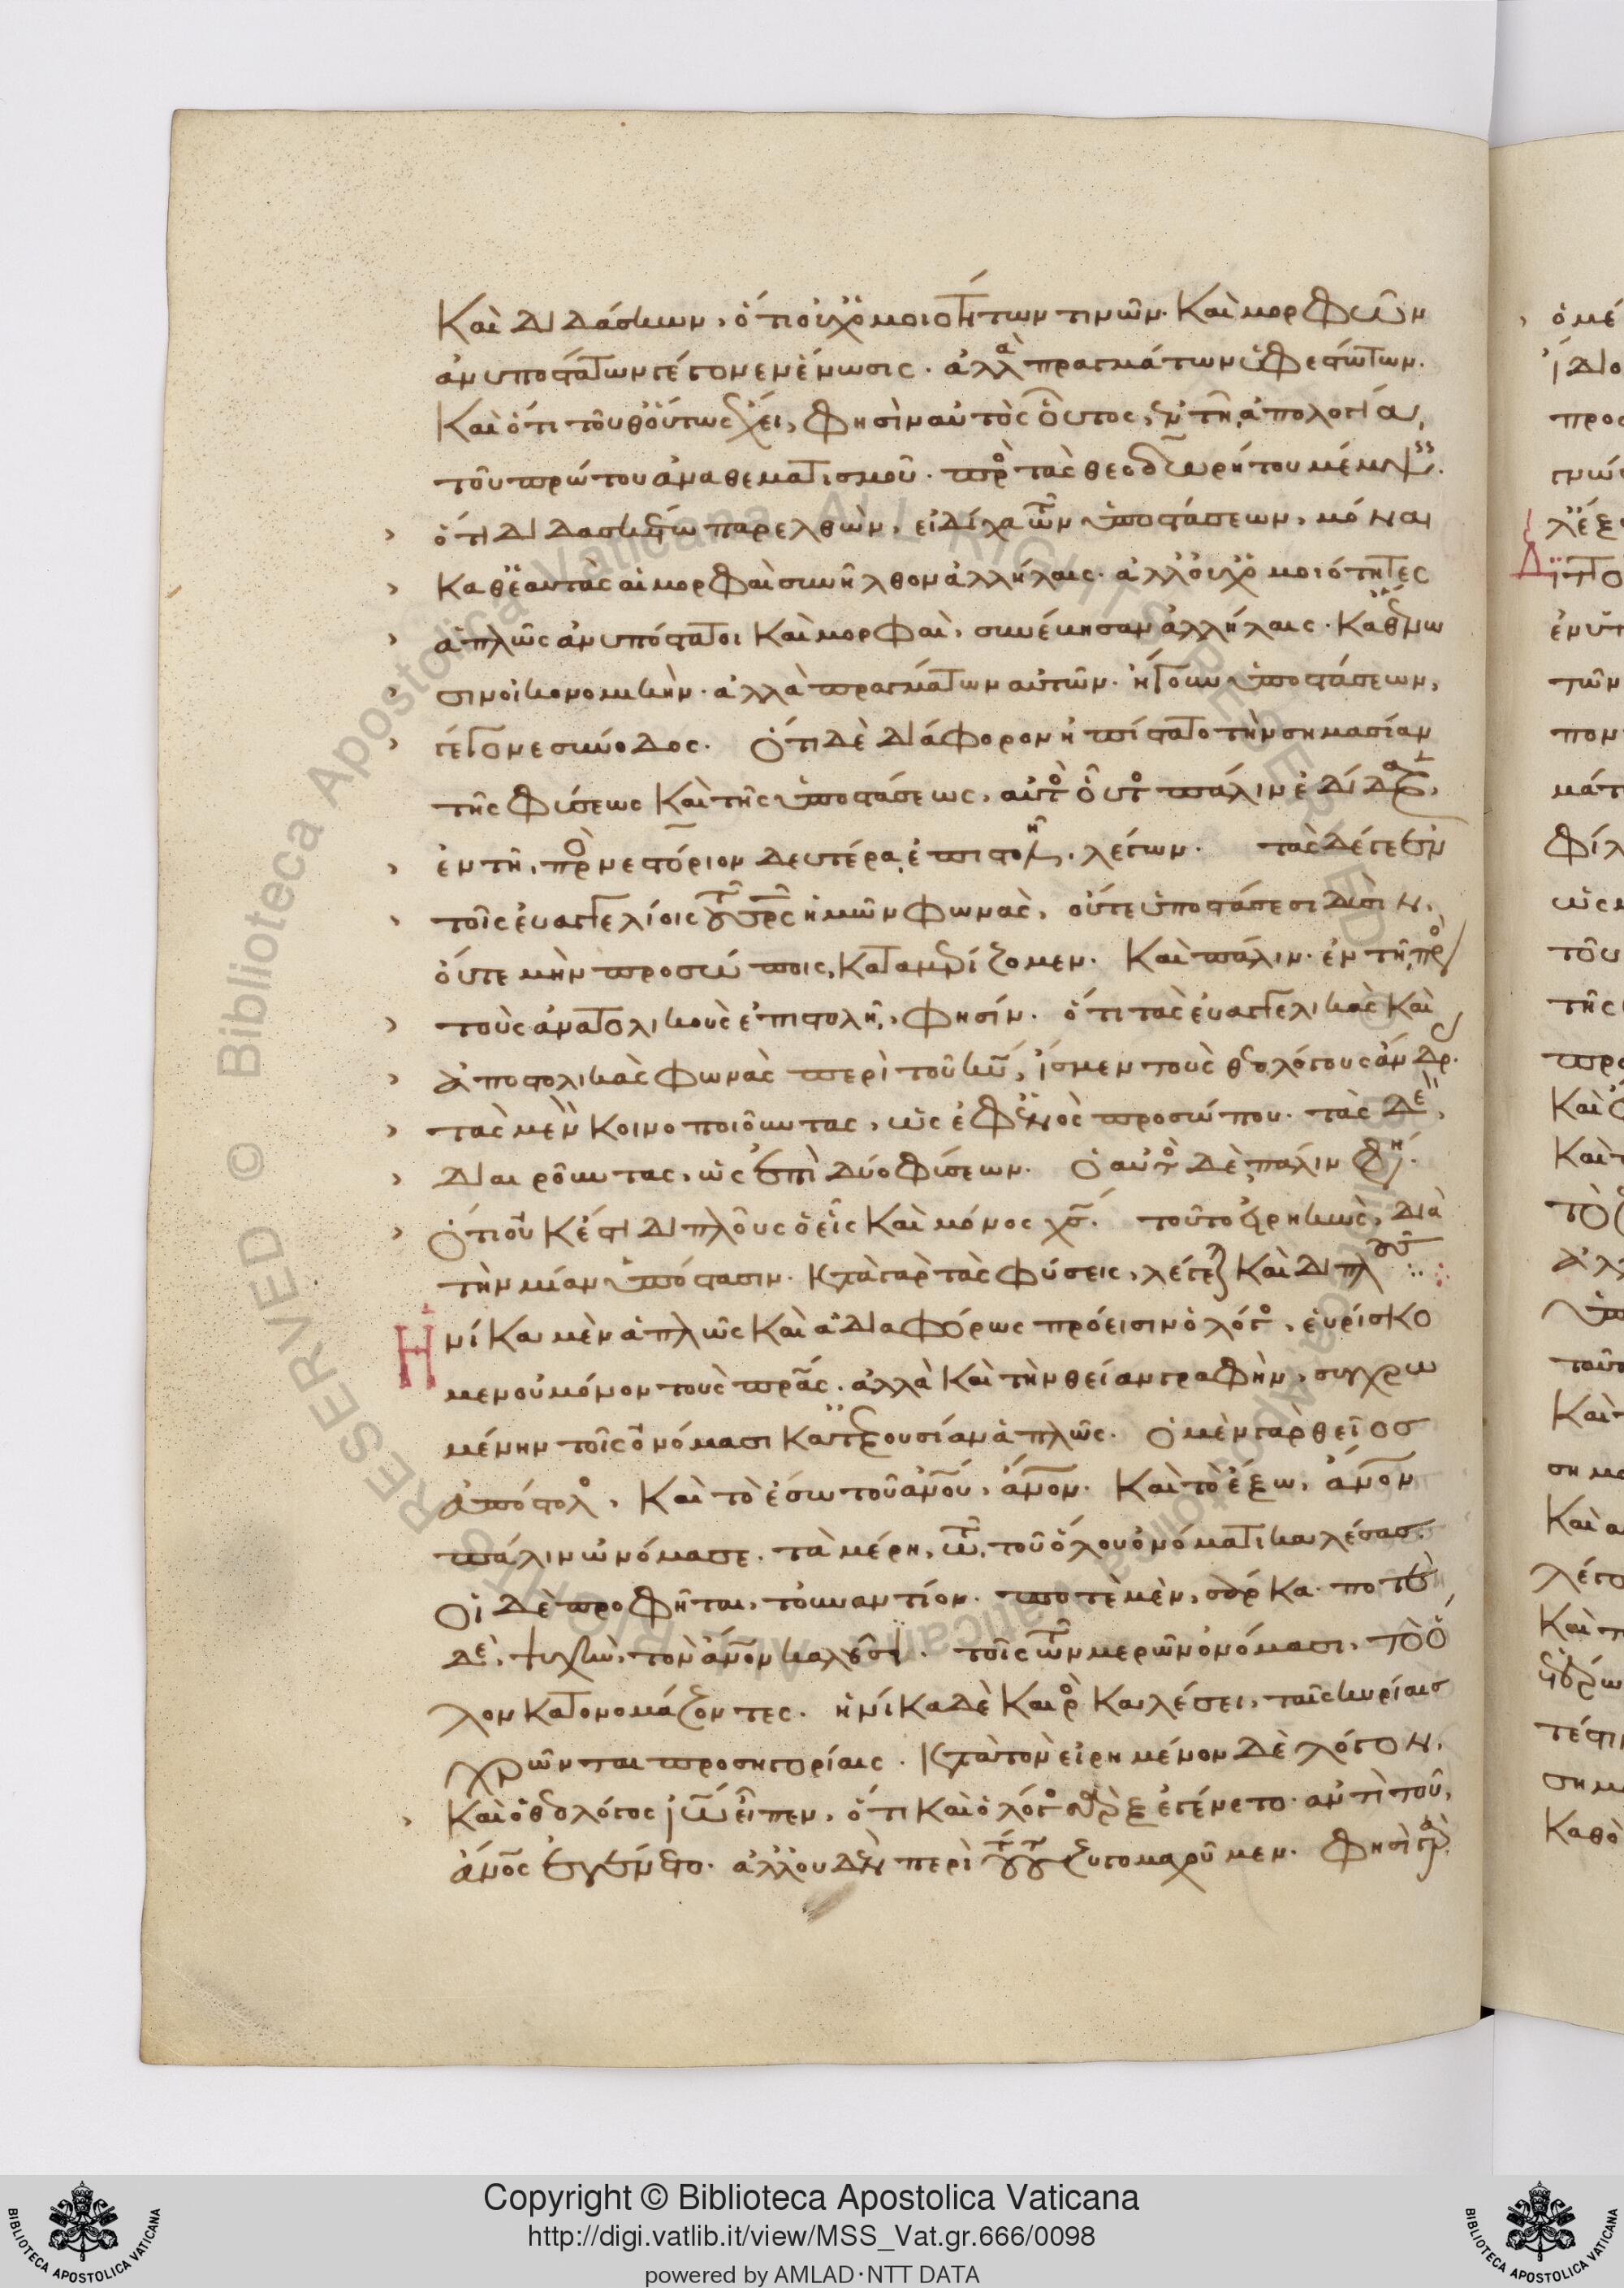 Καὶ διδάσκων, ὅτι οὐχ ὁμοιοτήτων τινῶν. Καὶ μορφῶν
ἀνυποστάτων γέγονεν ἕνωσις. ἀλλὰ πραγμάτων ὑφεστώτων.
Καὶ ὅτι τοῦθ' οὕτως ἔχει, φησὶν αὐτὸς οὗτος, ἐν τῆ ἀπολογία
τοῦ πρώτου ἀναθεματισμοῦ. πρὸς τὰς θεοδωρήτου μέμψεις.
ὅτι διδασκέτω παρελθὼν, εἰ δίχα τῶν ὑποστάσεων, μόναι
καθ' ἑαυτὰς αἱ μορφαὶ συνῆλθον ἀλλήλαις. ἀλλ' οὐχ ὁμοιότητες
ἁπλῶς ἀνυπόστατοι Καὶ μορφαὶ, συνέβησαν ἀλλήλαις. Καθ' ἕνω
σιν οἰκονομικὴν. ἀλλὰ πραγμάτων αὐτῶν. ἤγουν ὑποστάσεων,
γέγονε σύνοδος. Ὅτι δὲ διάφορον ἠπίστατο τὴν σημασίαν
τῆς φύσεως Καὶ τῆς ὑποστάσεως, αὐτὸς οὗτος πάλιν ἐδίδαξεν,
ἐν τῆ πρὸς νεστόριον δευτέρα ἐπιστολῆ. λέγων. τὰς δέ γε ἐν
τοῖς εὐαγγελίοις τοῦ σρς ἡμῶν φωνὰς, οὔτε ὑποστάσεσι δυσὶν,
οὔτε μὴν προσώποις, Καταμερίζομεν. Καὶ πάλιν. ἐν τῆ πρὸς
τοὺς ἀνατολικοὺς ἐπιστολῆ, φησίν. ὅτι τὰς εὐαγγελικὰς Καὶ
ἀποστολικὰς φωνὰς περὶ τοῦ κυ, ἴσμεν τοὺς θεολόγους ἄνδρας
τὰς μὲν Κοινοποιοῦντας, ὡς ἐφ' ἑνὸς προσώπου. τὰς δὲ,
διαιροῦντας, ὡς ἐπὶ δύο φύσεων. Ὁ αὐτὸς δὲ πάλιν φη.
Ὅτι οὐκ ἔστι διπλοῦς ὁ εἷς Καὶ μόνος χς. τοῦτο εἴρηκὼς, διὰ
τὴν μίαν ὑπόστασιν. Κατὰ γὰρ τὰς φύσεις, λέγεται Καὶ διπλοῦς
Ἡνίκα μὲν ἁπλῶς Καὶ ἀδιαφόρως πρόεισιν ὁ λόγος, εὑρίσκο
μεν οὐ μόνον τοὺς πρας. ἀλλὰ Καὶ τὴν θείαν γραφὴν, συγχρω
μένην τοῖς ὀνόμασι Κατ' ἐξουσίαν ἁπλῶς. Ὁ μὲν γὰρ θεῖος
ἀπόστολος, Καὶ τὸ ἔσω τοῦ ανου, ανον. Καὶ τὸ ἔξω, ανον
πάλιν ὠνόμασε. τὰ μέρη, τῶ τοῦ ὅλου ὀνόματι καλέσας.
Οἱ δὲ προφῆται, τοὐναντίον. ποτὲ μὲν, σάρκα. ποτὲ
δὲ, ψυχὴν, τὸν ανον καλοῦσι. τοῖς τῶν μερῶν ὀνόμασι, τὸ ὅ
λον Κατονομάζοντες. ἡνίκα δὲ Καιρὸς Καλέσει, ταῖς κυρίαις
χρῶνται προσηγορίαις. Κατὰ τὸν εἰρημένον δὲ λόγον,
Καὶ ὁ θεολόγος ιω εἶπεν, ὅτι Καὶ ὁ λόγος σὰρξ ἐγένετο. ἀντὶ τοῦ,
ανος ἐγένετο. ἀλλ' οὐδὲν περὶ τούτου ζυγομαχοῦμεν. Φησὶ γὰρ